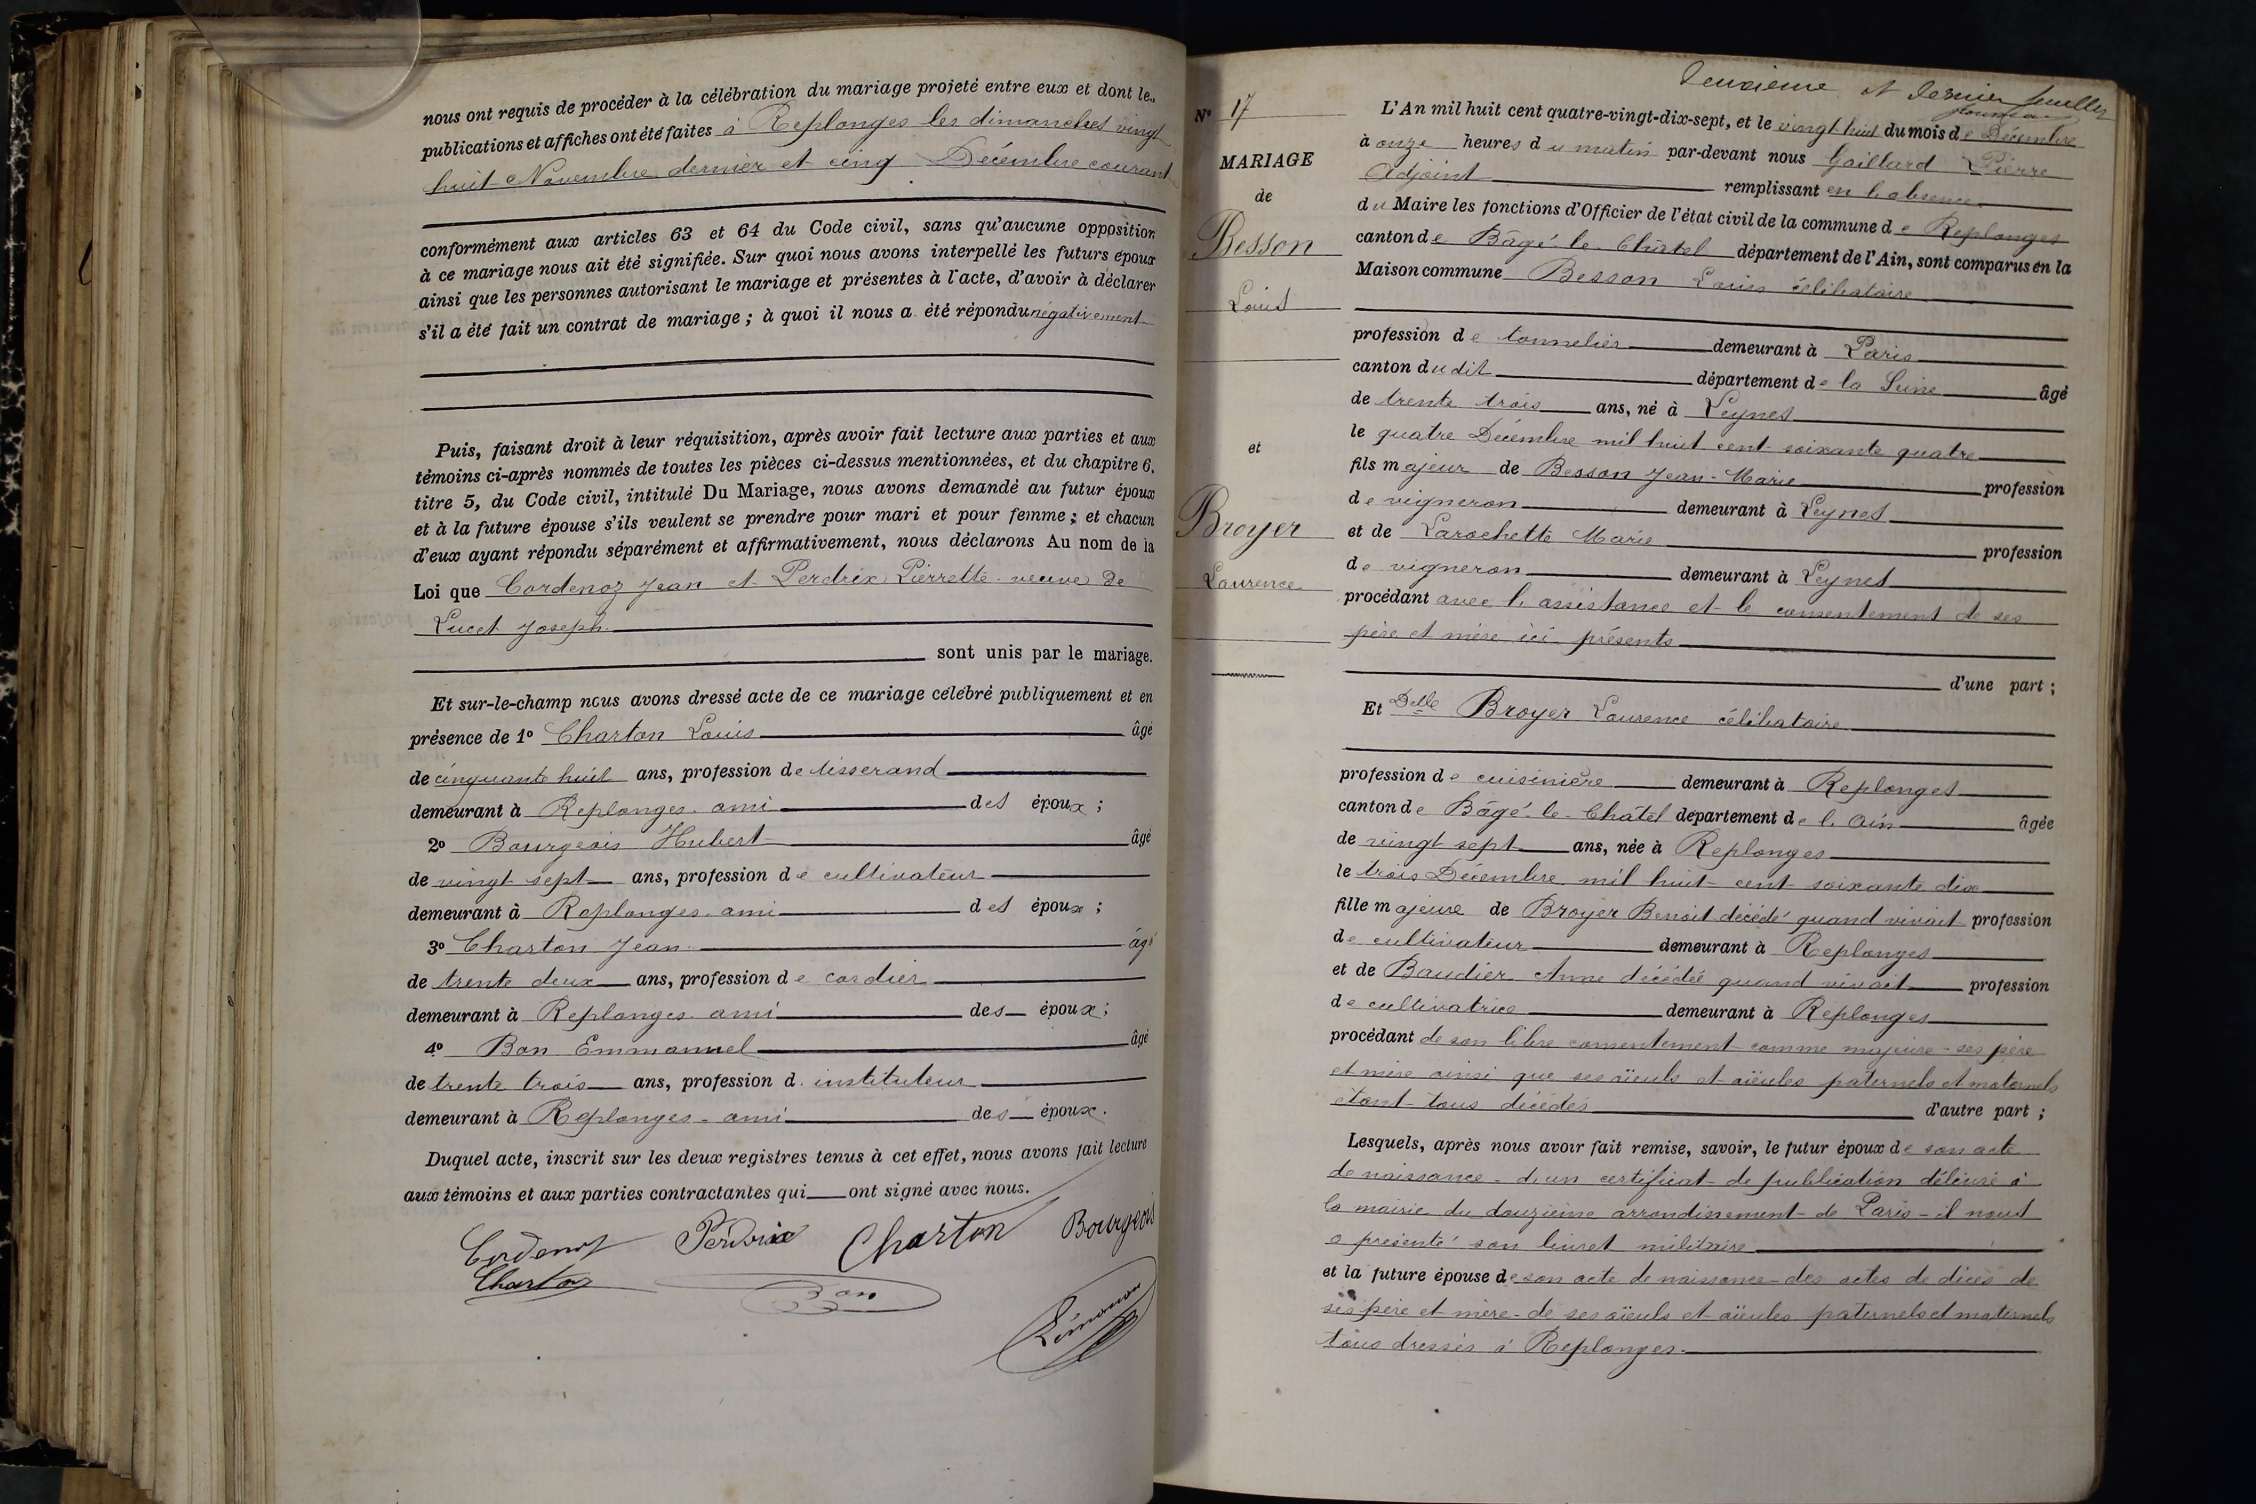 nous ont requis de procéder à la célébration du mariage projeté entre eux et dont les
publications et affiches ont été faites à Replonges les dimanches vingt
huit Novembre dernier et cinq Décembre courant
conformément aux articles 63 et 64 du Code civil, sans qu'aucune opposition
à ce mariage nous ait été signifiée. Sur quoi nous avons interpellé les futurs époux
ainsi que les personnes autorisant le mariage et présentes à l'acte, d'avoir à déclarer
s'il a été fait un contrat de mariage ; à quoi il nous a été répondu négativement
Puis, faisant droit à leur réquisition, après avoir fait lecture aux parties et aux
témoins ci-après nommés de toutes les pièces ci-dessus mentionnées, et du chapitre 6,
titre 5, du Code civil, intitulé Du Mariage, nous avons demandé au futur époux
et à la future épouse s'ils veulent se prendre pour mari et pour femme ; et chacun
d'eux ayant répondu séparément et affirmativement, nous déclarons Au nom de la
Loi que Cordenoz Jean et Perdrix Pierrette veuve de
Lucet Joseph
sont unis par le mariage.
Et sur-le-champ nous avons dressé acte de ce mariage célébré publiquement et en
présence de 1º Charton Louis âgé
de cinquante huit ans, profession de tisserand
demeurant à Replonges ami des époux ;
2º Bourgeois Hubert âgé
de vingt sept ans, profession de cultivateur
demeurant à Replonges ami des époux ;
3º Charton Jean âgé
de trente deux ans, profession de cordier
demeurant à Replonges ami des époux ;
4º Bon Emmanuel âgé
de trente trois ans, profession d. instituteur
demeurant à Replonges - ami des époux.
Duquel acte, inscrit sur les deux registres tenus à cet effet, nous avons fait lecture
aux témoins et aux parties contractantes qui ont signé avec nous.
Cordenoz Perdrix Charton Bourgeois
Charton Bon
Deuxième et dernier feuillet
Nº 17
MARIAGE
de
Besson
Louis
et
Broyer
Laurence
L'An mil huit cent quatre-vingt-dix-sept, et le vingt huit du mois de Décembre
à onze heures du matin par-devant nous Gaillard Pierre
Adjoint remplissant en l'absence
du Maire les fonctions d'Officier de l'état civil de la commune de Replonges
canton de Bâgé-le-Châtel département de l'Ain, sont comparus en la
Maison commune Besson Louis célibataire
profession de tonnelier demeurant à Paris
canton dudit département de la Seine âgé
de trente trois ans, né à Leynes
le quatre Décembre mil huit cent soixante quatre
fils majeur de Besson Jean-Marie profession
de vigneron demeurant à Leynes
et de Larochette Marie profession
de vigneron demeurant à Leynes
procédant avec l'assistance et le consentement de ses
père et mère ici présents
d'une part ;
Et Delle Broyer Laurence célibataire
profession de cuisinière demeurant à Replonges
canton de Bâgé-le-Châtel département de l'Ain âgée
de vingt sept ans, née à Replonges
le trois Décembre mil huit cent soixante dix
fille majeure de Broyer Benoit décédé quand vivait profession
de cultivateur demeurant à Replonges
et de Baudier Anne décédée quand vivait profession
de cultivatrice demeurant à Replonges
procédant de son libre consentement comme majeure - ses père
et mère ainsi que ses aïeuls et aïeules paternels et maternels
étant tous décédés d'autre part ;
Lesquels, après nous avoir fait remise, savoir, le futur époux de son acte
de naissance - d'un certificat de publication délivré à
la mairie du douzième arrondissement de Paris - il nous
a présenté son livret militaire
et la future épouse de son acte de naissance - des actes de décès de
ses père et mère - de ses aïeuls et aïeules paternels et maternels
tous dressés à Replonges.